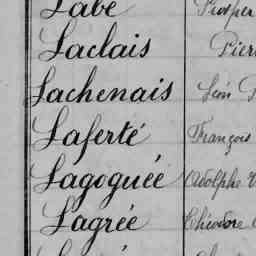 Labé Prosper
Laclais Pierr
Lachenais Léon P
Laferté François
Lagoguée Adolphe V
Lagrée Théodore